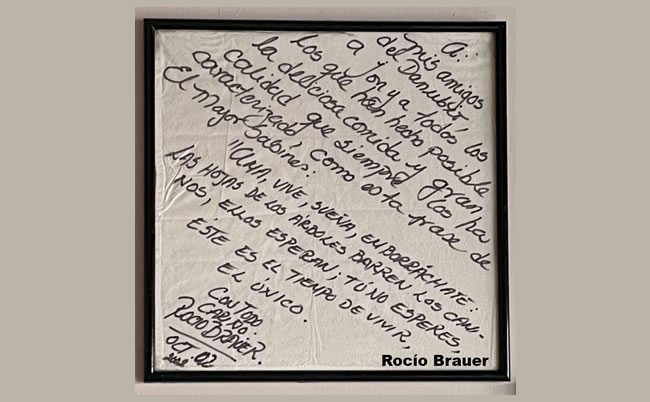 A:
mis amigos
del Danubio,
a Jon y a todos los
los que han hecho posible
la deliciosa comida y gran
calidad que siempre los ha
caracterizado, como esta frase de
El Mayor Sabines:
"AMA, VIVE, SUEÑA, EMBORRÁCHATE:
LAS HOJAS DE LOS ÁRBOLES BARREN LOS CAMI-
NOS, ELLOS ESPERAN; TÚ NO ESPERES,
ESTE ES EL TIEMPO DE VIVIR,
EL ÚNICO.
CON TODO
CARIÑO.
ROCIO BRAUER.
OCT. 02
Rocío Brauer